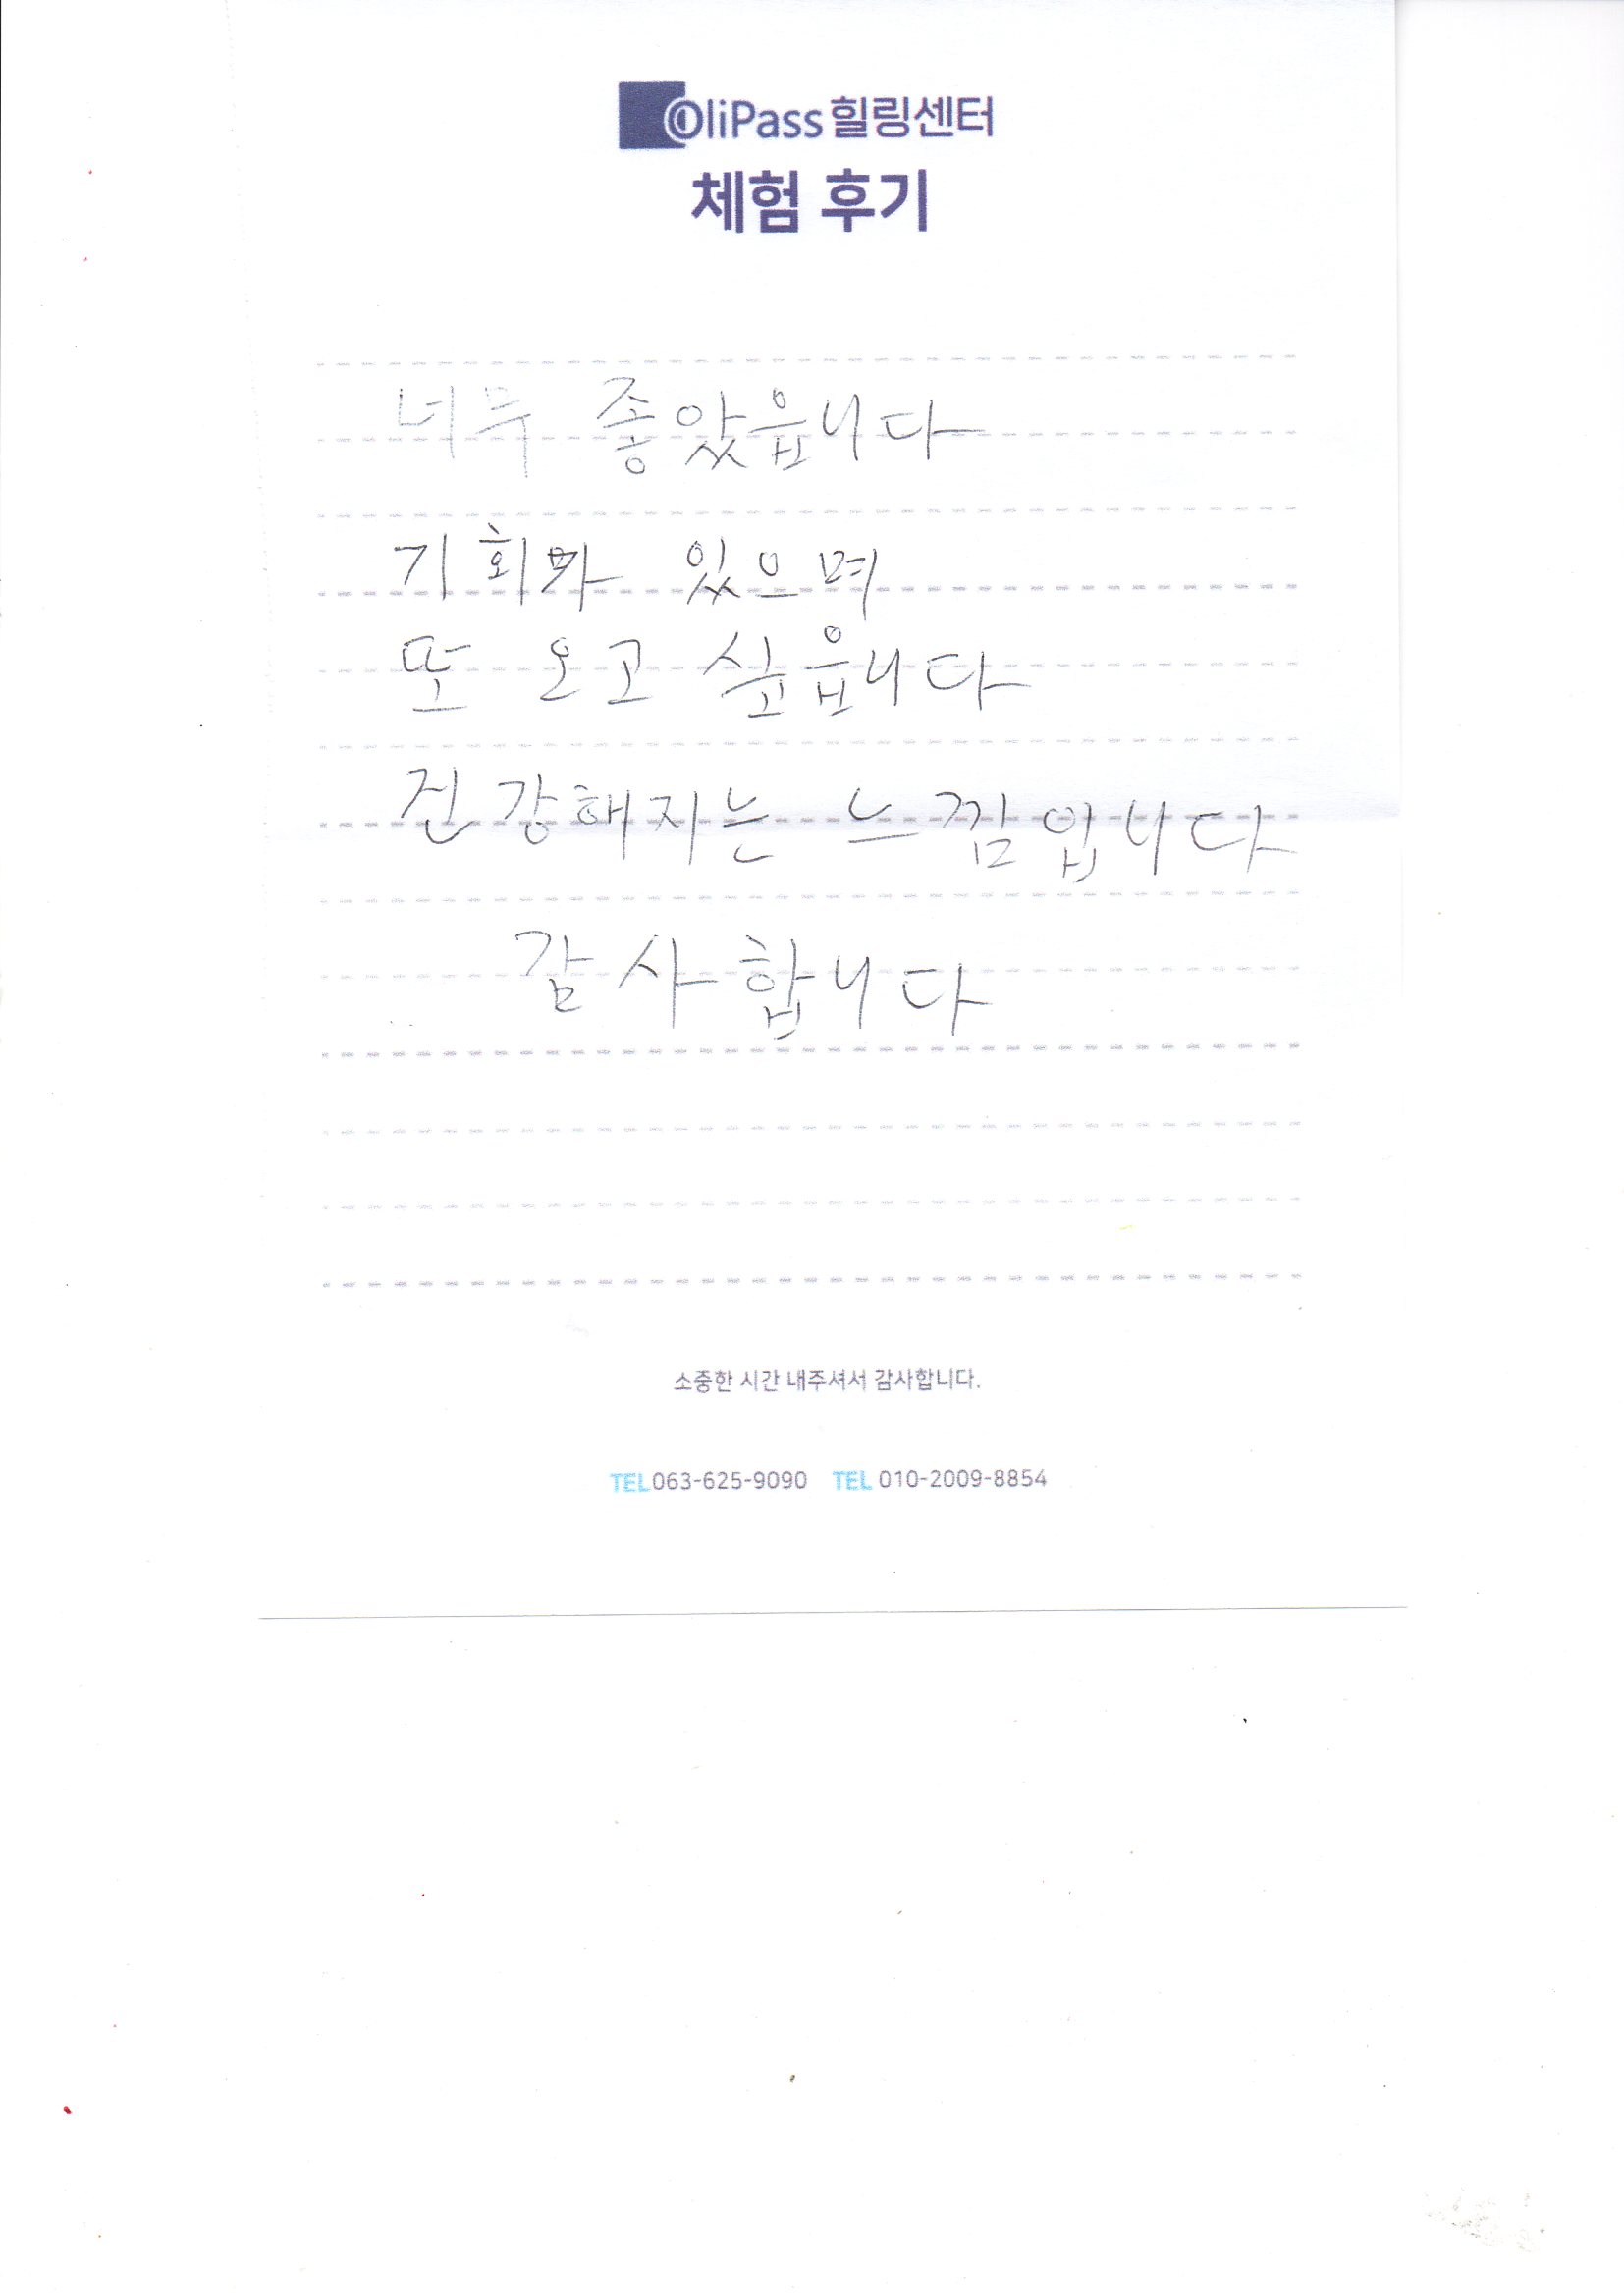 OliPass 힐링센터
체험 후기
너무 좋았읍니다
기회가 있으며
또 오고 싶읍니다
건강해지는 느낌입니다
감사합니다
소중한 시간 내주셔서 감사합니다.
TEL 063-625-9090 TEL 010-2009-8854